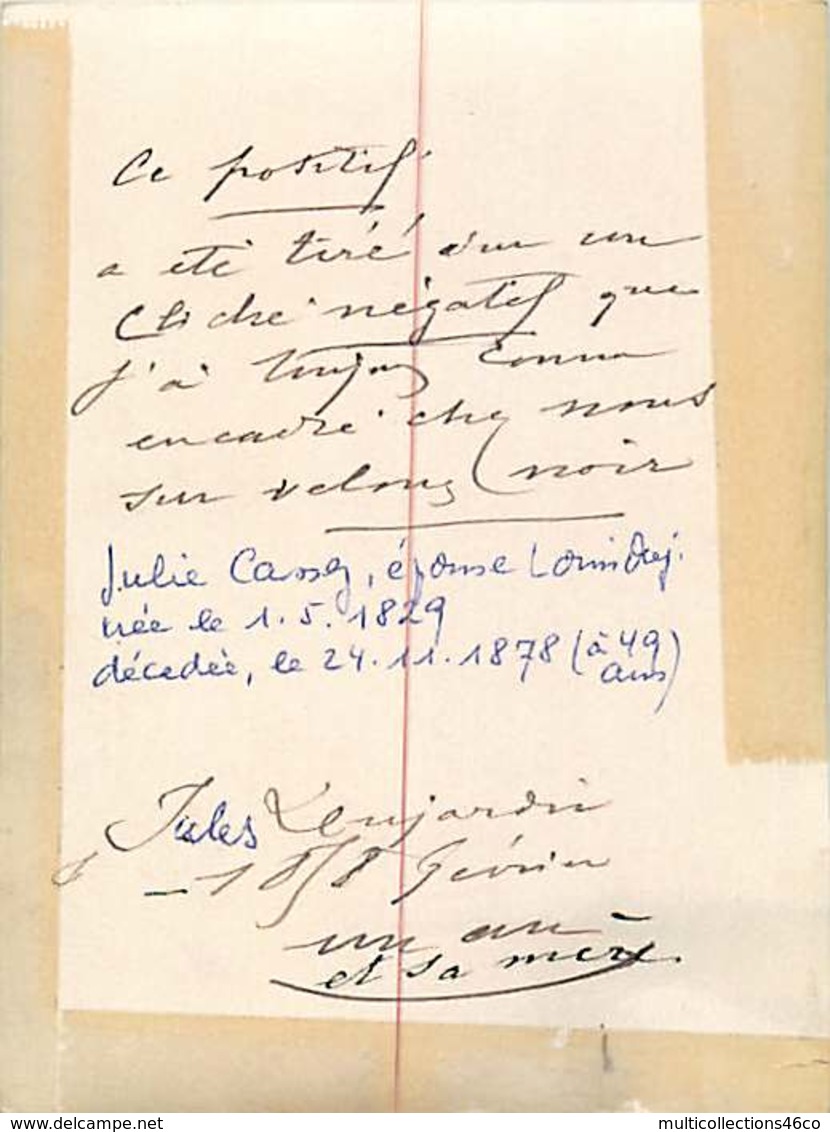 Ce positif
a été tiré sur un
cliché négatif que
j'ai toujours connu
encadré chez nous
sur velours noir
Julie Cassey, épouse
née le 1.5.1829
décedée, le 24.11.1878 (à 49
ans)
Jules Lenjardin
1858 février
un an
et sa mère.
www.delcampe.net
multicollections46co